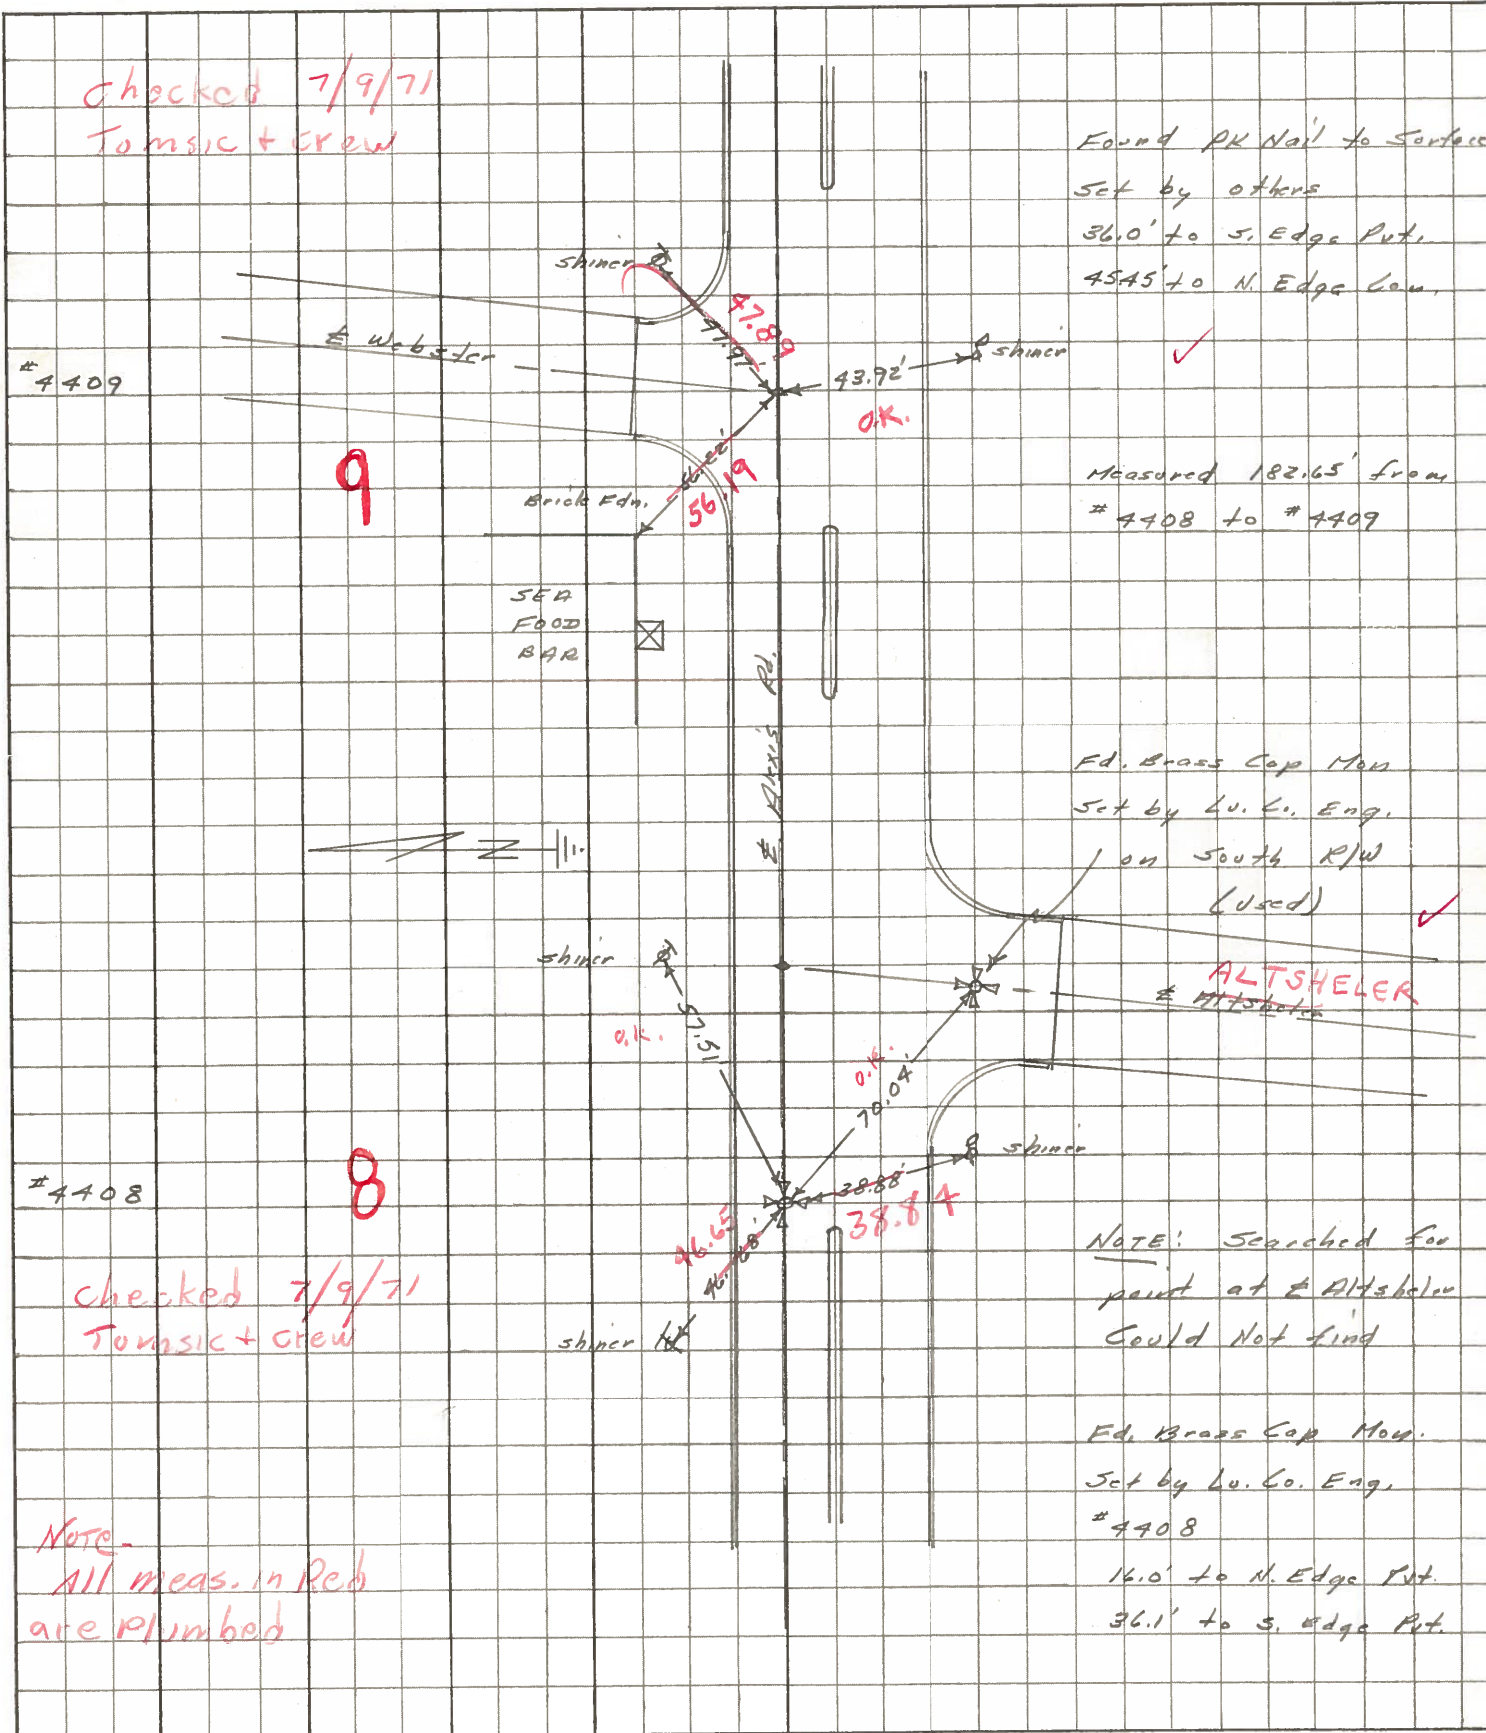 Checked 7/9/71
Tomsic + Crew
Found PK Nail to Surface
Set by others
36.0' to S. Edge Pvt.
4545' to N. Edge Con.
shiner
47.91'
47.89
℄ Webster
#4409
43.92'
shiner
O.K.
9
56.19
Brick Fdn.
Measured 182.65' from
#4408 to #4409
SEA
FOOD
BAR
℄ Alexis Rd.
Fd. Brass Cap Mon
Set by Lu. Co. Eng.
on South R/W
(used)
N
shiner
57.51'
O.K.
O.K.
70.04'
ALTSHELER
℄ Altsheler
shiner
#4408
8
38.88'
38.84
46.65
46.68'
shiner
Checked 7/9/71
Tomsic + Crew
NOTE: Searched for
point at ℄ Altsheler
Could Not find
Fd. Brass Cap Mon.
Set by Lu. Co. Eng.
#4408
16.0' to N. Edge Pvt.
36.1' to S. Edge Pvt.
Note-
All meas. in Red
are Plumbed